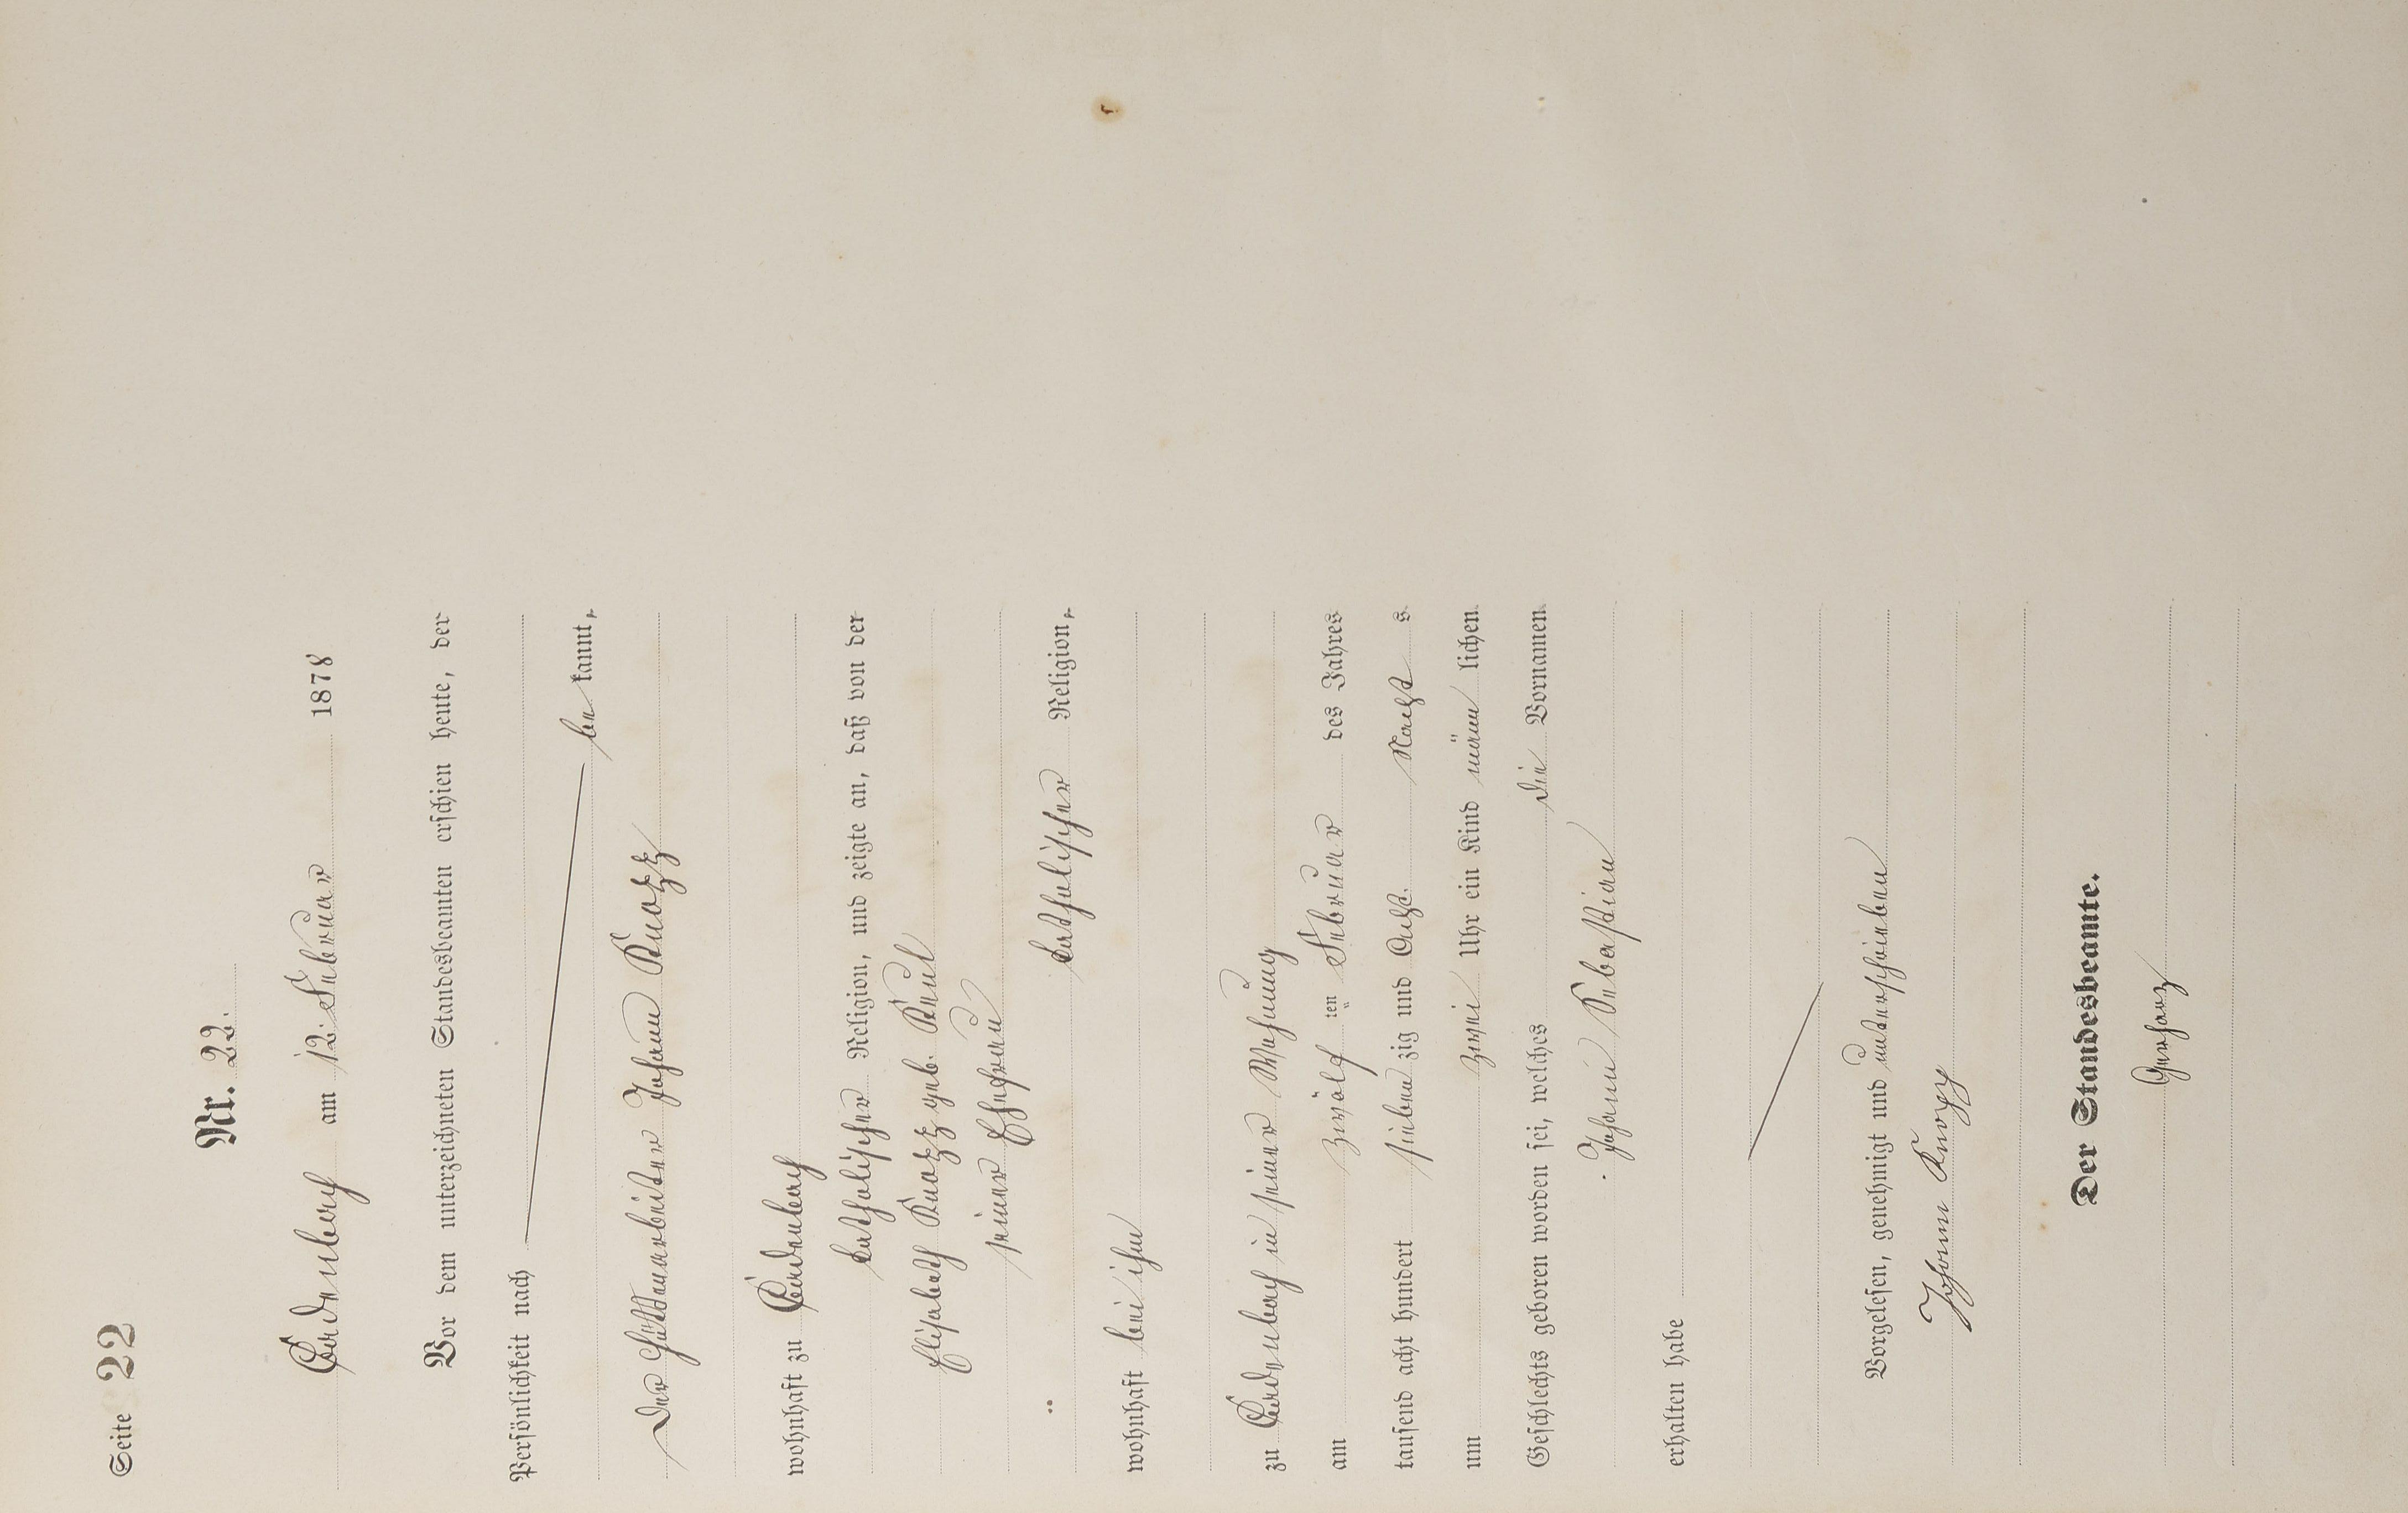 Seite 22
Nr. 22.
am 12. Februar 1878
Vor dem unterzeichneten Standesbeamten erschien heute, der
Persönlichkeit nach
be kannt,
der Hüttenarbeiter Johann Knopp
wohnhaft zu
katholischer Religion, und zeigte an, daß von der
Elisabeth Knopp geb. Keul
seiner Ehefrau
katholischer Religion,
wohnhaft bei ihm
zu in seiner Wohnung
am zwölf ten Februar des Jahres
tausend acht hundert sieben zig und Acht. Nachts
um zwei Uhr ein Kind männ lichen
Geschlechts geboren worden sei, welches die Vornamen
Johann Sebastian
erhalten habe
Vorgelesen, genehmigt und unterschrieben
Johann Knopp
Der Standesbeamte.